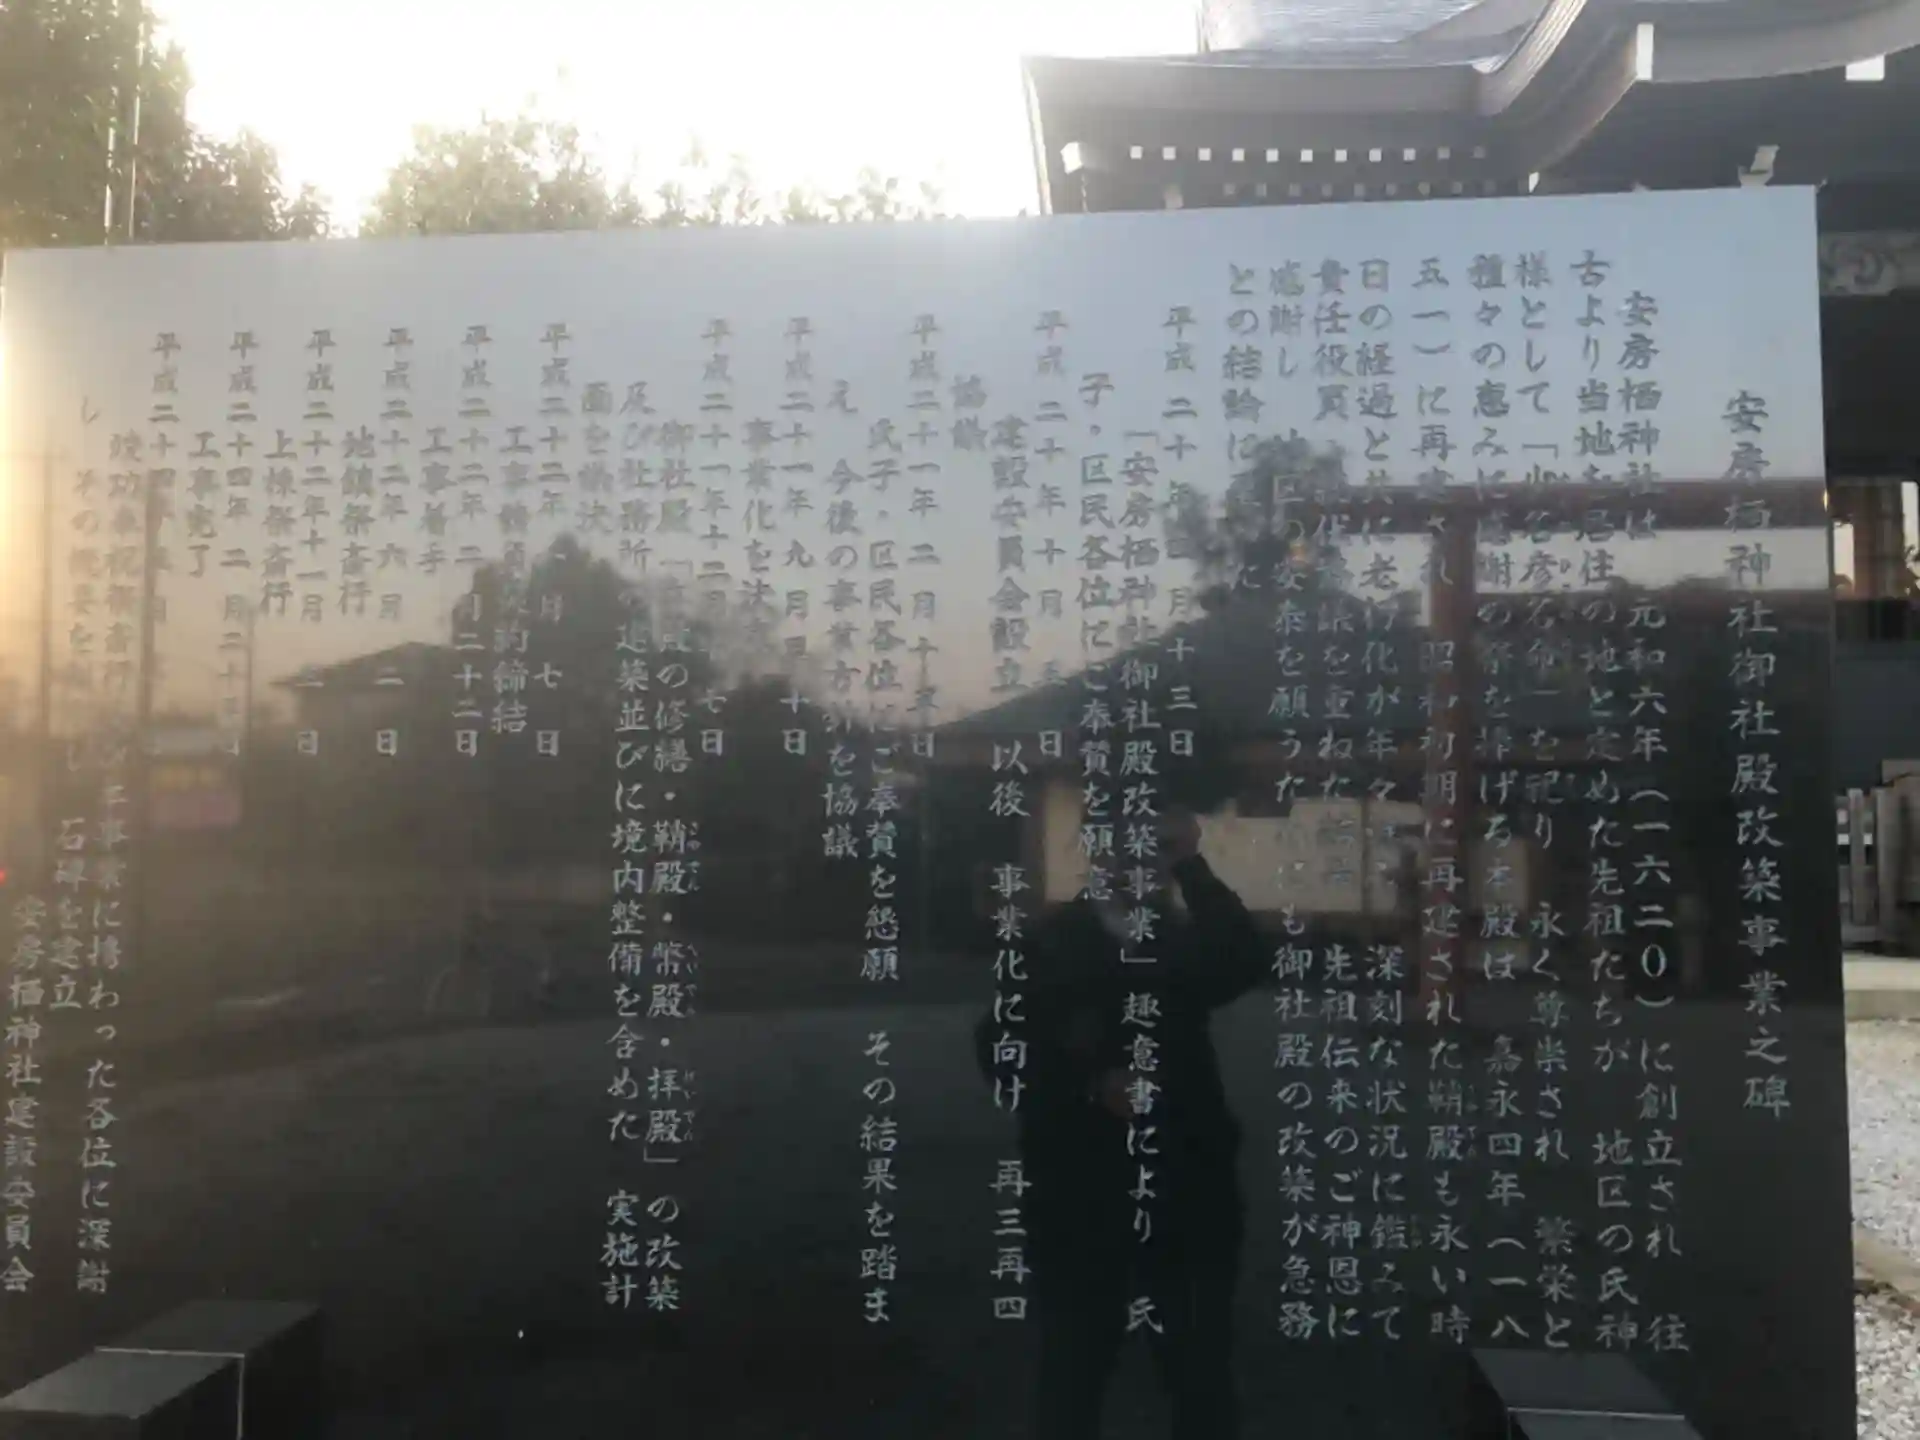 安房栖神社御社殿改築事業之碑
安房栖神社は 元和六年(一六二〇)に創立され 往
古より当地を居住の地と定めた先祖たちが 地区の氏神
様として「少名彦名命」を祀り 永く尊崇され 繁栄と
種々の恵みに感謝の祭を捧げる本殿は 嘉永四年(一八
五一)に再建され 昭和初期に再建された鞘殿も永い時
日の経過と共に老朽化が年々 深刻な状況に鑑みて
責任役員 を重ねた 先祖伝来のご神恩に
感謝し 区の安泰を願うた にも御社殿の改築が急務
との結論に
平成二十年 月十三日
「安房栖神社御社殿改築事業」趣意書により 氏
子・区民各位にご奉賛を願意
平成二十年十月 日
建設委員会設立 以後 事業化に向け 再三再四
協議
平成二十一年二月十五日
氏子・区民各位にご奉賛を懇願 その結果を踏ま
え 今後の事業方針を協議
平成二十一年九月 十日
事業化を決
平成二十一年十二月 七日
御社殿「 殿の修繕・鞘殿・幣殿・拝殿」の改築
さやでん へいでん はいでん
及び社務所 築並びに境内整備を含めた 実施計
画を議決
平成二十二年 月 七日
工事 約締結
平成二十二年 二月二十二日
工事着手
平成二十二年六月 二日
地鎮祭斎行
平成二十二年十一月 日
上棟祭斎行
平成二十四年 二月二十 日
工事完了
平成二十四年 月
竣功奉祝祭斎行 事業に携わった各位に深謝
し その概要を 石碑を建立
安房栖神社建設委員会